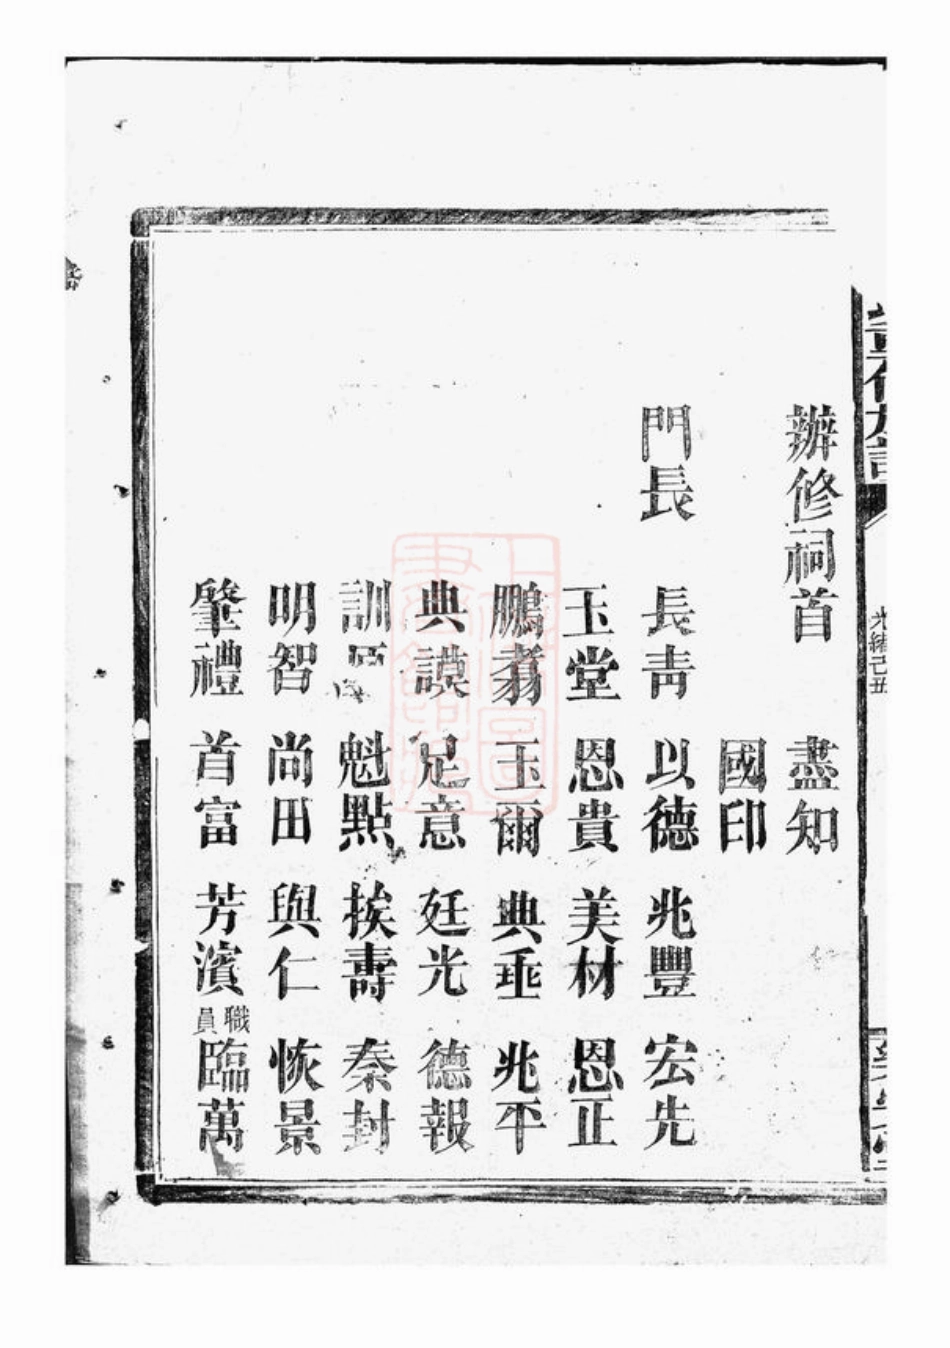 光緒己丑
辦修祠首 盡知
國印
門長 長青 以德 兆豐 宏先
玉堂 恩貴 美材 恩正
鵬翥 玉爾 典垂 兆平
典謨 足意 廷光 德報
訓 魁點 挨壽 秦封
明智 尚田 與仁 恢景
肇禮 首富 芳濱 職員 臨萬